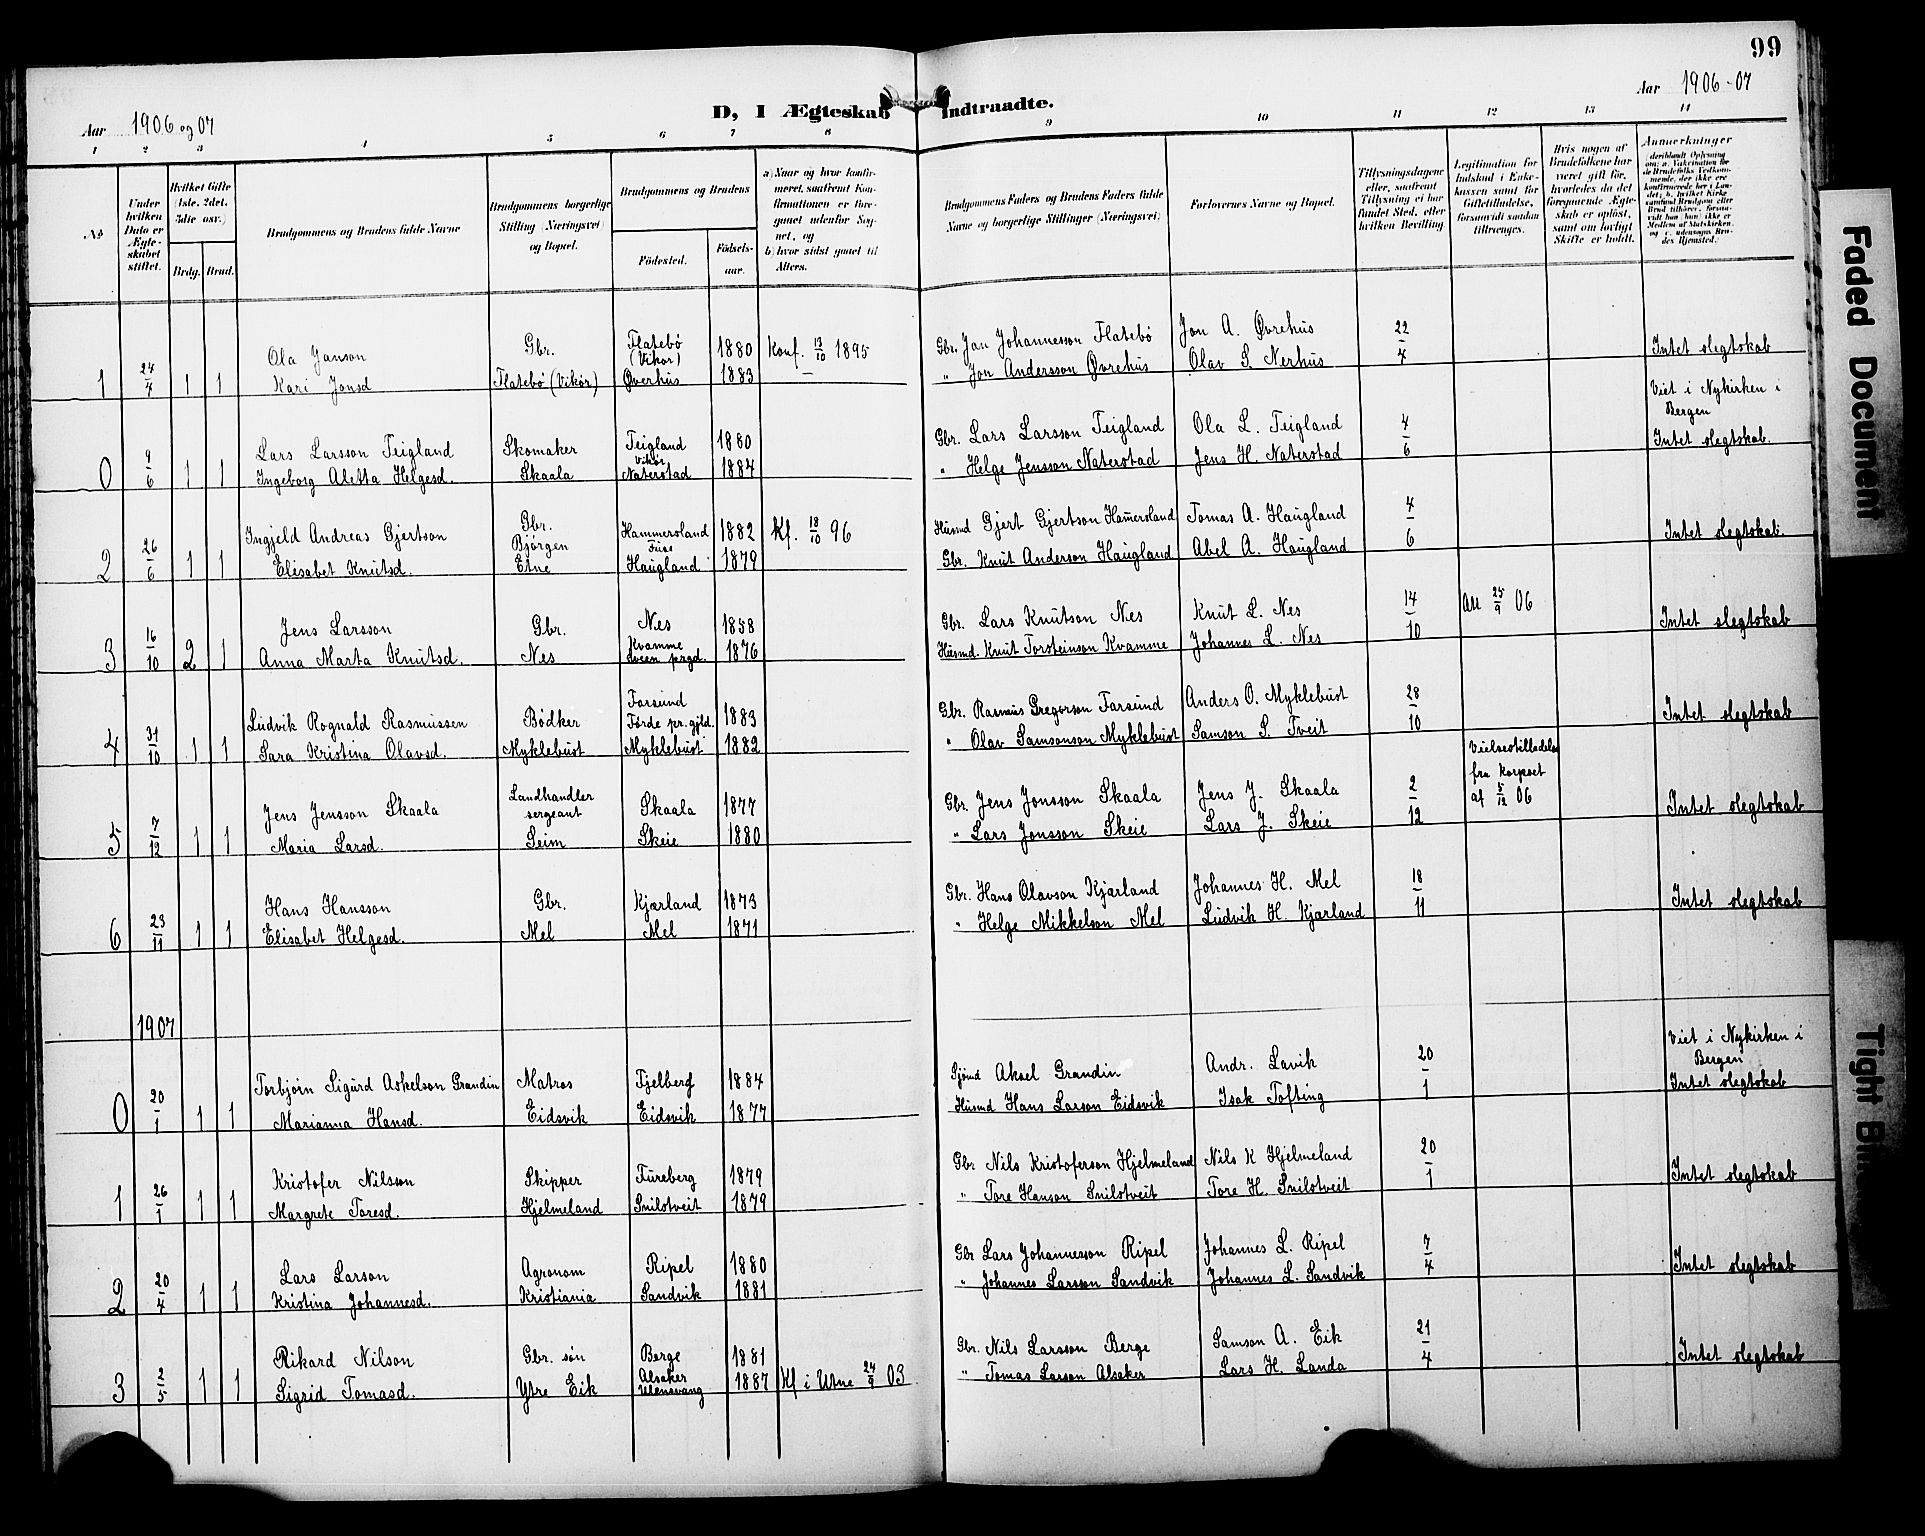 99
Aar 1906 og 07
D, I Ægteskab Indtraadte.
Aar 1906-07
1 2 3 4 5 6 7 8 9 10 11 12 13 14
No
Under hvilken Dato er Ægteskabet stiftet.
Hvilket Gifte (1ste, 2det, 3die osv.)
Brdg. Brud.
Brudgommens og Brudens fulde Navne
Brudgommens borgerlige Stilling (Næringsvei) og Bopæl.
Brudgommens og Brudens
Födested.
Fødselsaar.
a) Naar og hvor konfirmeret, saafremt Konfirmationen er foregaaet udenfor Sognet, og
b) hvor sidst gaaet til Alters.
Brudgommens Faders og Brudens Faders fulde Navne og borgerlige Stillinger (Næringsvei)
Forlovernes Navne og Bopæl.
Tillysningsdagene eller, saafremt Tillysning ei har fundet Sted, efter hvilken Bevilling.
Legitimation for Indskud i Enkekassen samt for Giftetilladelse, forsaavidt saadan tiltrænges.
Hvis nogen af Brudefolkene har været gift før, hvorledes da det foregaaende Ægteskab er opløst, samt om lovligt Skifte er holdt.
Anmerkninger
(deriblandt Oplysning om: a. Vakcination for de Brudefolks Vedkommende, der ikke ere konfirmerede her i Landet; b. hvilket Kirkesamfund Brudgom eller Brud tilhører, forsaavidt han (hun) ikke er Medlem af Statskirken, og c. udensogns Brudes Hjemsted.)
Ola Janson Gbr. Flatebö (Vikör) 1880 Konf. 13/10 1895 Gbr. Jan Johannesson Flatebö Jon A. Øvrehus 22/4 Intet slegtskab
1 24/4 1 1 Kari Jonsd Flatebö (Vikör) Øverhus 1883 — " Jon Andersson Øvrehus Olav S. Nerhus
Viet i Nykirken i Bergen
Lars Larsson Teigland Skomaker Teigland Vikör 1880 Gbr. Lars Larsson Teigland Ola L. Teigland 4/6 Intet slegtskab.
0 9/6 1 1 Ingeborg Aletta Helgesd. Skaala Naterstad 1884 " Helge Jensson Naterstad Jens H. Naterstad
Ingjeld Andreas Gjertson Gbr. Bjørgen Hammersland Fuse 1882 Kf. 18/10 96 Husmd Gjert Gjertson Hamersland Tomas A. Haugland 4/6 Intet slegtskab.
2 26/6 1 1 Elisabet Knutsd. Etne Haugland 1879 Gbr. Knut Anderson Haugland Abel A. Haugland
Jens Larsson Gbr. Nes 1858 Gbr. Lars Knutson Nes Knut L. Nes 14/10 25/9 06 Intet slegtskab
3 16/10 2 1 Anna Marta Knutsd. Nes Kvamme prgd. 1876 Husmd. Knut Torsteinson Kvamme Johannes L. Nes
Ludvik Rognald Rasmussen Bödker Farsund Førde pr.gjld. 1883 Gbr. Rasmus Gregorson Farsund Anders O. Myklebust 28/10 Intet slegtskab
4 31/10 1 1 Sara Kristina Olavsd. Myklebust Myklebust 1882 " Olav Samsonson Myklebust Samson S. Tveit
Vielsestilladelse fra Korpset af 5/12 06
Jens Jensson Skaala Landhandler sergeant Skaala 1877 Gbr. Jens Jonsson Skaala Jens J. Skaala 2/12 Intet slegtskab
5 7/12 1 1 Maria Larsd. Seim Skeie 1880 " Lars Jonsson Skeie Lars J. Skeie
Hans Hansson Gbr. Kjærland 1873 Gbr. Hans Olavson Kjærland Johannes H. Mel 18/11 Intet slegtskab
6 23/11 1 1 Elisabet Helgesd. Mel Mel 1871 " Helge Mikkelson Mel Ludvik H. Kjærland
1907
Viet i Nykirken i Bergen
Torbjörn Sigurd Askelson Grandin Matros Fjelberg 1884 Sjömd Aksel Grandin Andr. Lavik 20/1 Intet slegtskab
0 20/1 1 1 Marianna Hansd. Eidsvik Eidsvik 1877 Husmd Hans Larson Eidsvik Isak Tofting
Kristofer Nilsson Skipper Fureberg 1879 Gbr Nils Kristoferson Hjelmeland Nils K Hjelmeland 20/1 Intet slegtskab
1 26/1 1 1 Margrete Toresd. Hjelmeland Snilstveit 1879 " Tore Hanson Snilstveit Tore H. Snilstveit
Lars Larson Agronom Ripel 1880 Gbr Lars Johannesson Ripel Johannes L. Ripel 7/4 Intet slegtskab
2 20/4 1 1 Kristina Johannesd. Kristiania Sandvik 1881 " Johannes Larsson Sandvik Johannes L. Sandvik
Rikard Nilson Gbr. søn Berge 1881 Gbr. Nils Larsson Berge Samson A. Eik 21/4 Intet slegtskab
3 2/5 1 1 Sigrid Tomasd. Ytre Eik Alsaker Ulensvang 1887 Kf i Utne 24/9 03 " Tomas Larson Alsaker Lars H. Landa
Faded Document
Tight